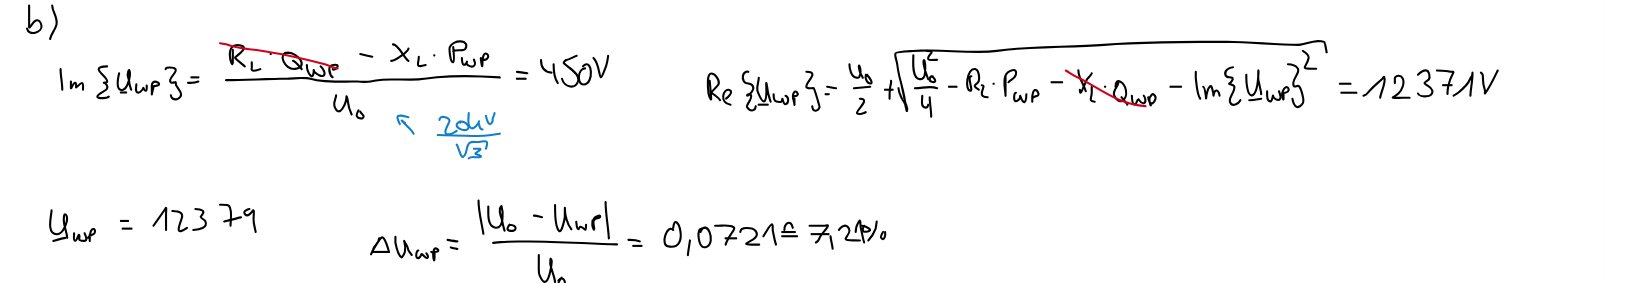 b)
Im{U̲_WP} = (R_L · Q_WP − X_L · P_WP) / U_0 = 450V
20kV / √3
Re{U̲_WP} = U_0/2 + √(U_0²/4 − R_L · P_WP − X_L · Q_WP − Im{U̲_WP}²) = 12371V
U̲_WP = 12379
ΔU_WP = |U_0 − U_WP| / U_0 = 0,0721 ≙ 7,21%